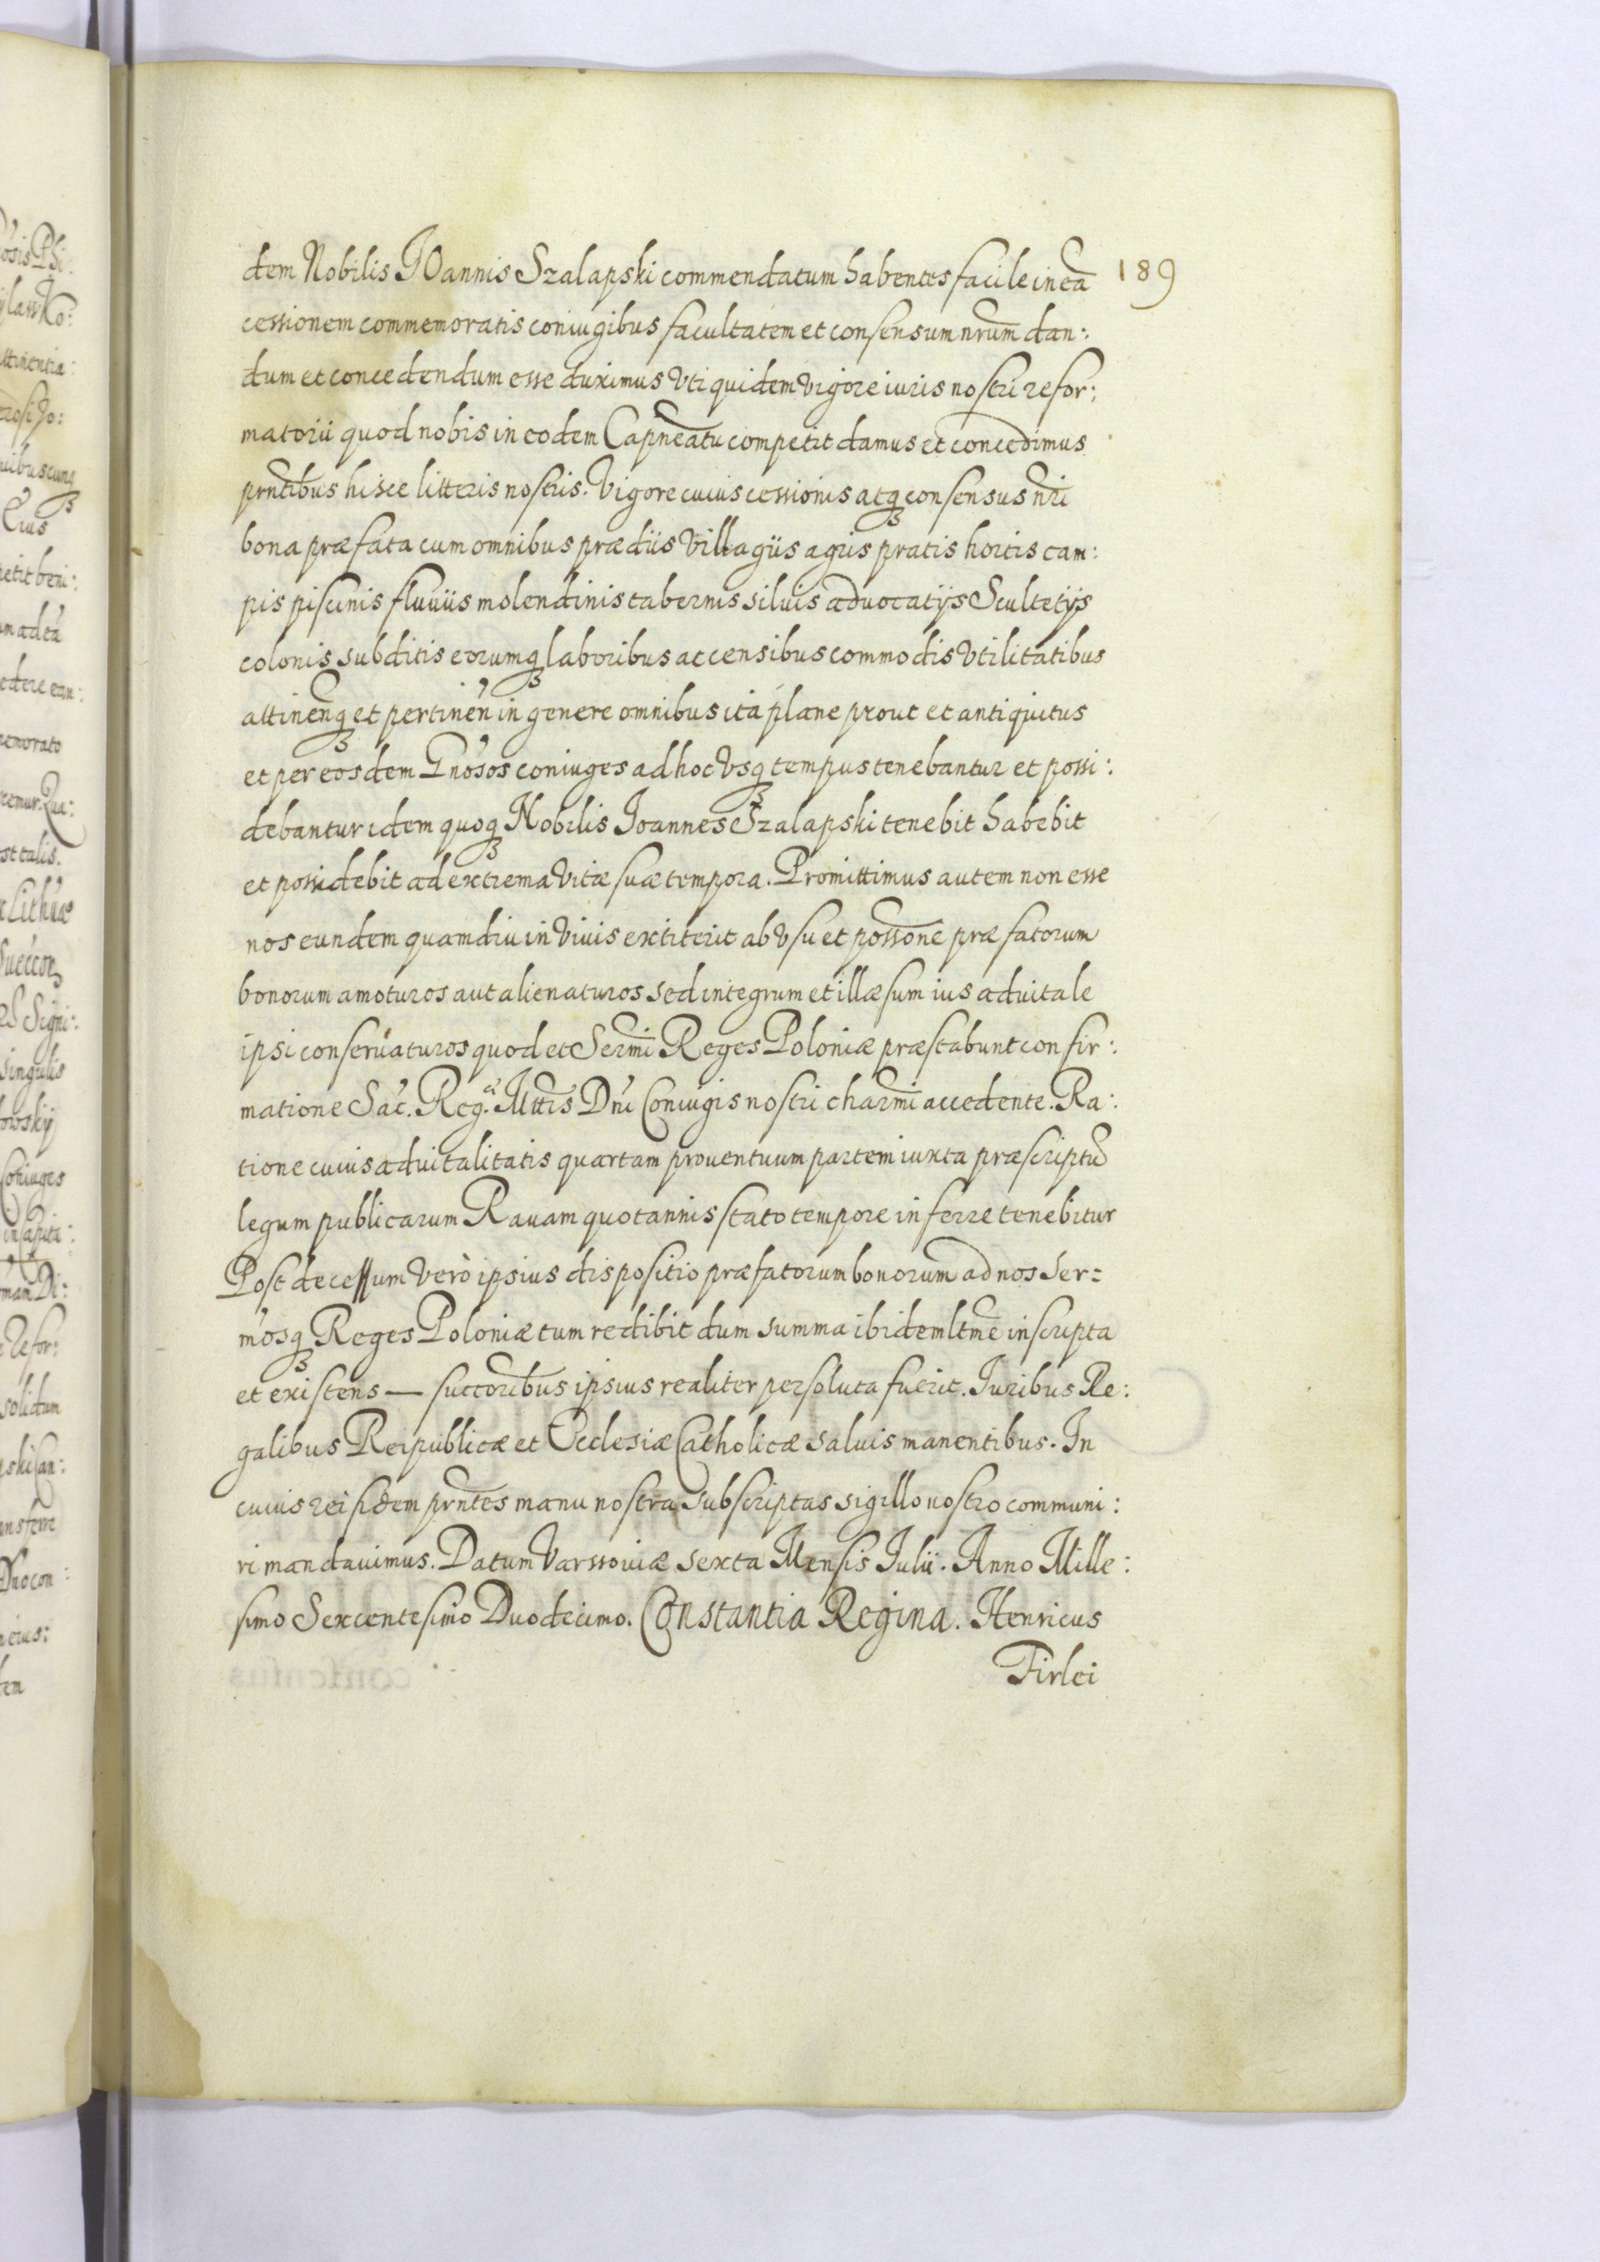 189
dem Nobilis IOannis Szalapski commendatum habentes facile in eã
cessionem commemoratis coniugibus facultatem et consensum nr̃um dan:
dum et concedendum esse duximus Vti quidem vigore iuris nostri refor:
matorii quod nobis in eodem Capneatu competit damus et concedimus
prñtibus hisce litteris nostris. Vigore cuius cessionis atq3 consensus nr̃i
bona præfata cum omnibus prædiis villagiis agris pratis hortis cam:
pis piscinis fluuiis molendinis tabernis siluis aduocatijs Scultetijs
colonis subditis eorumq3 laboribus ac censibus commodis vtilitatibus
attineñq3 et pertineñ in genere omnibus ita plane prout et antiquitus
et per eosdem Gñosos coniuges ad hoc vsq3 tempus tenebantur et possi:
debantur idem quoq3 Nobilis Ioannes Szalapski tenebit habebit
et possidebit ad extrema vitæ suæ tempora. Promittimus autem non esse
nos eundem quamdiu in viuis extiterit ab vsu et possõne præfatorum
bonorum amoturos aut alienaturos sed integrum et illæsum ius aduitale
ipsi conseruaturos quod et Serm̃i Reges Poloniæ præstabunt confir:
matione Sac̃. Reg.æ Mttis Dñi Coniugis nostri charm̃i accedente. Ra:
tione cuius aduitalitatis quartam prouentuum partem iuxta præscriptũ
legum publicarum Rauam quotannis stato tempore inferre tenebitur
Post decessum verò ipsius dispositio præfatorum bonorum ad nos Ser=
m̃osq3 Reges Poloniæ tum redibit dum summa ibidem ltm̃e inscripta
et existens — succoribus ipsius realiter persoluta fuerit. Iuribus Re:
galibus Reipublicæ et Ecclesiæ Catholicæ saluis manentibus. In
cuius rei fidem prñtes manu nostra subscriptas sigillo nostro communi:
ri mandauimus. Datum Varssouiæ sexta Mensis Iulii. Anno Mille:
simo Sexcentesimo Duodecimo. Constantia Regina. Henricus
Firlei